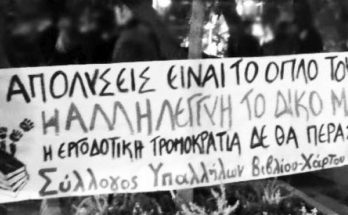 ΑΠΟΛΥΣΕΙΣ ΕΙΝΑΙ ΤΟ ΟΠΛΟ ΤΟΥ
Η ΑΛΛΗΛΕΓΓΥΗ ΤΟ ΔΙΚΟ Μ
Η ΕΡΓΟΔΟΤΙΚΗ ΤΡΟΜΟΚΡΑΤΙΑ ΔΕ ΘΑ ΠΕΡΑΣ
Σύλλογος Υπαλλήλων Βιβλίου-Χάρτου